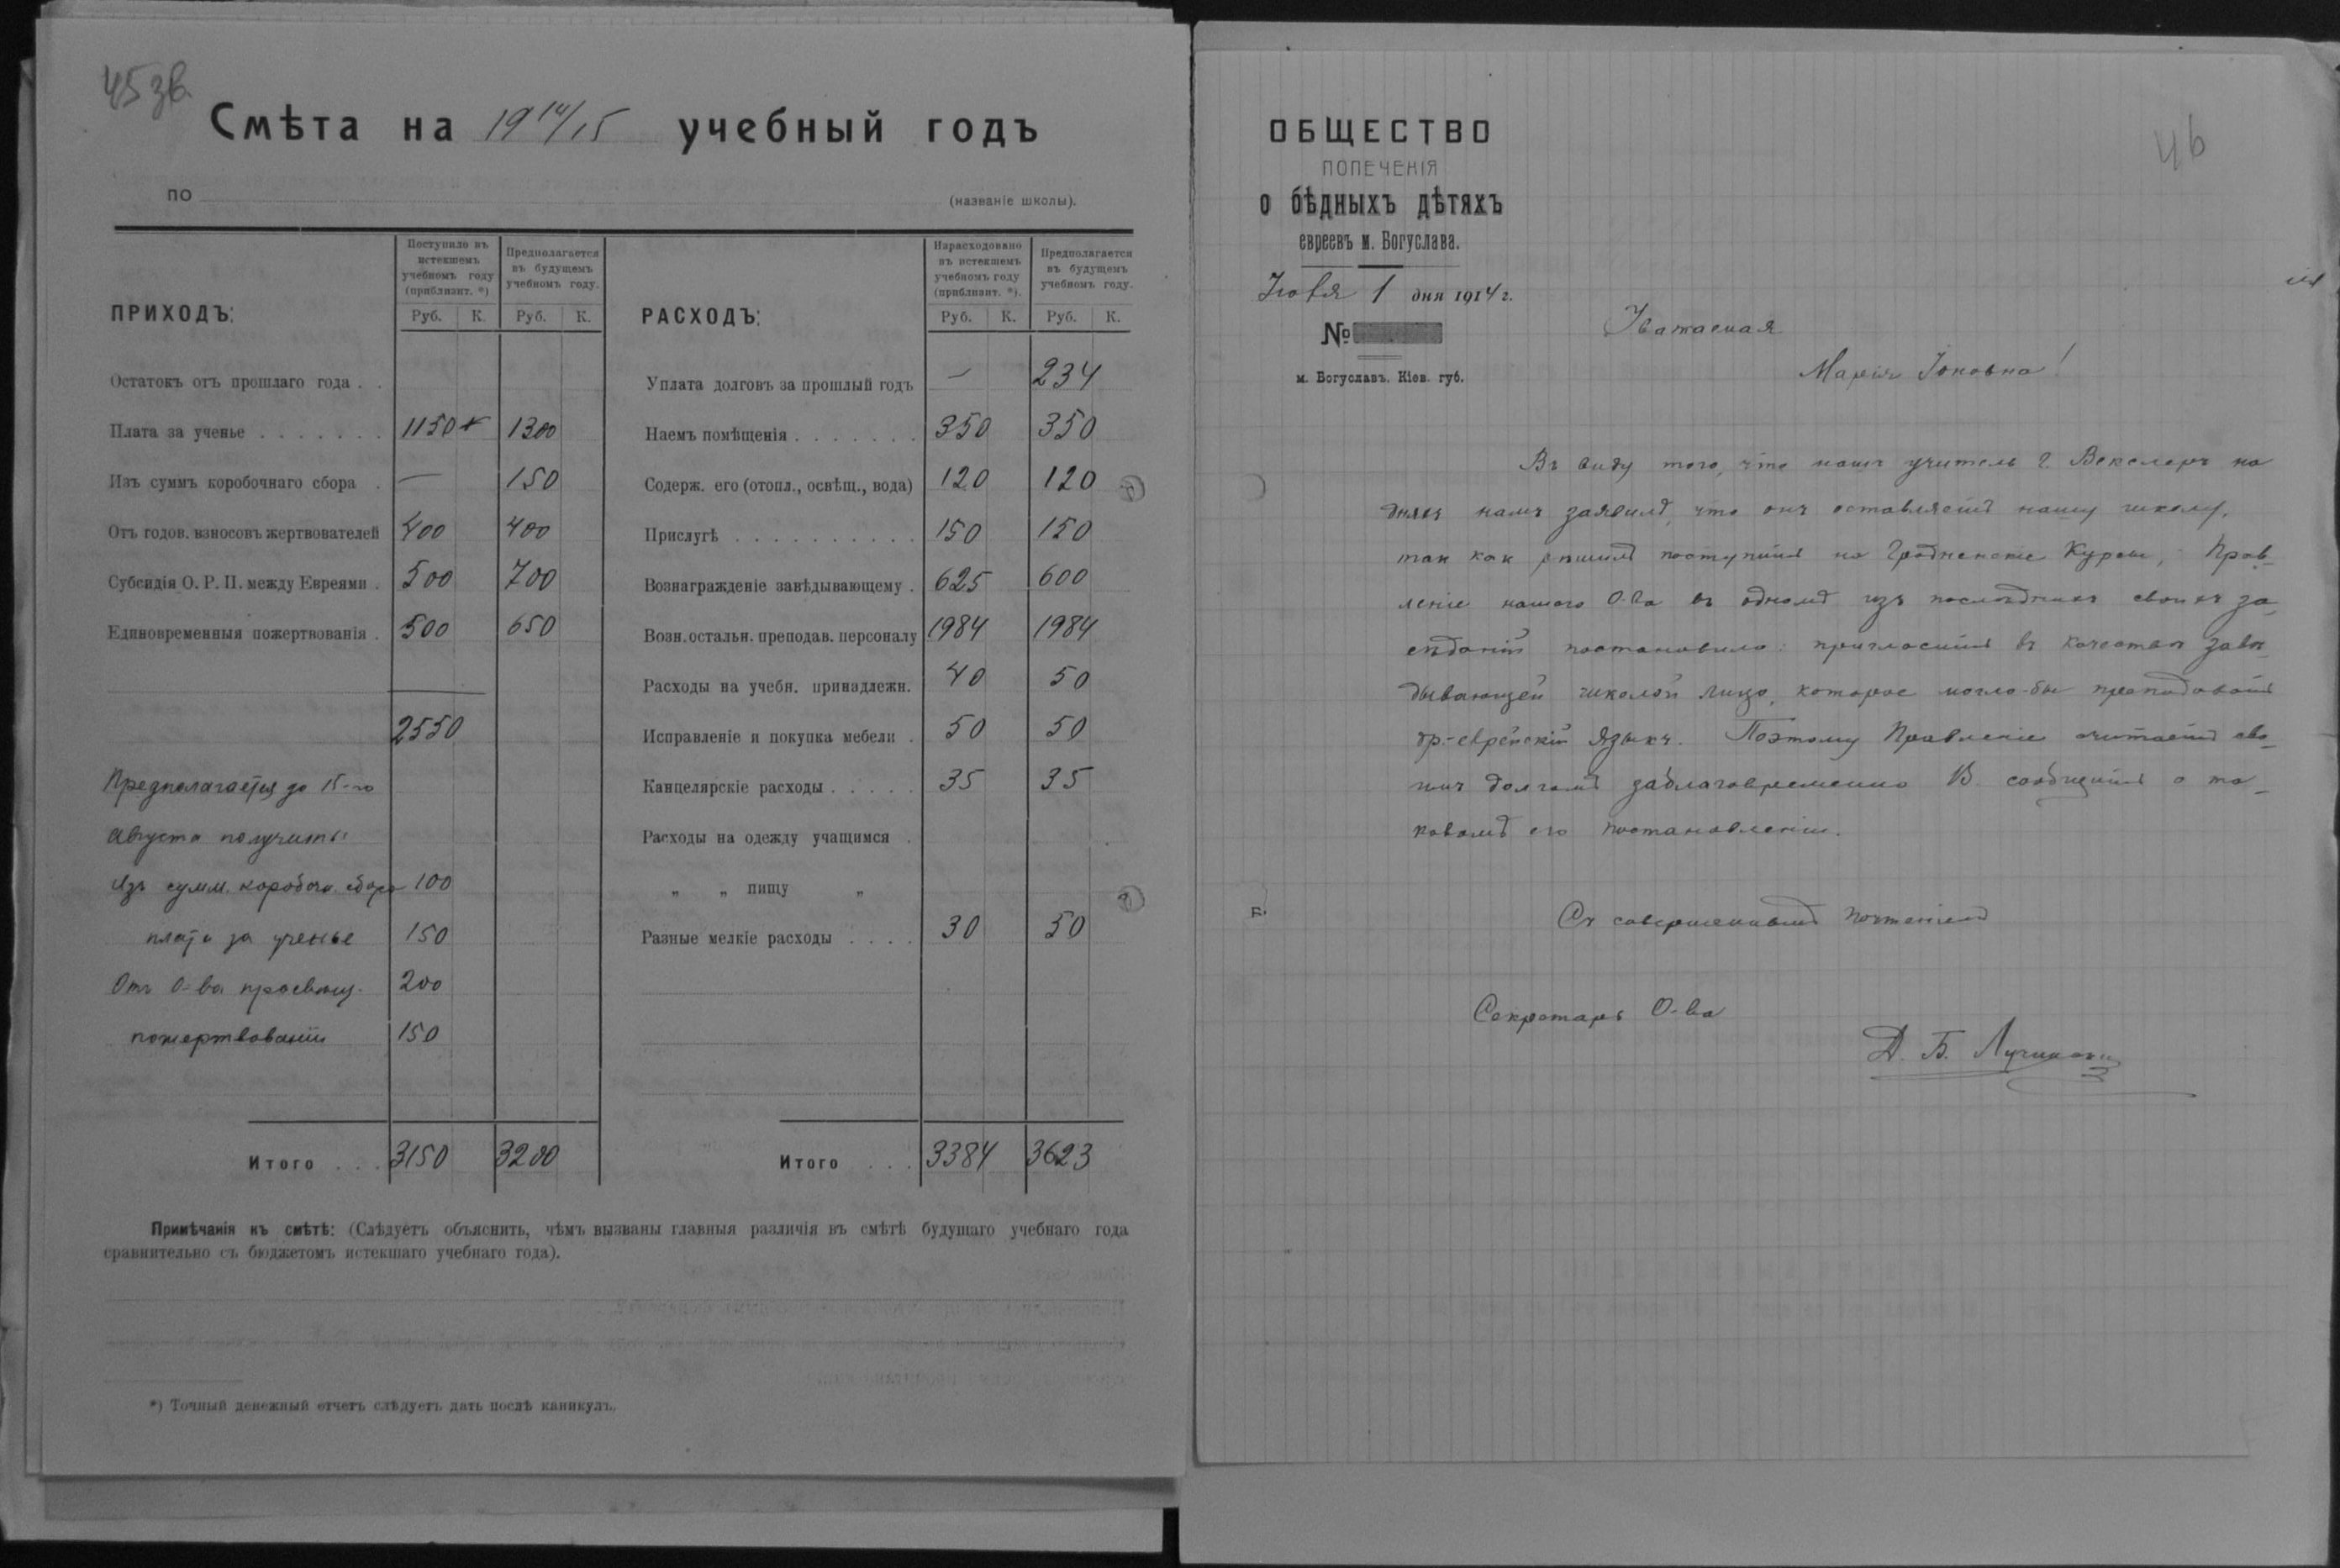 45 зв.
Смѣта на 1914/15 учебный годъ
по (названіе школы).
ПРИХОДЪ: Поступило въ истекшемъ учебномъ году (приблизит. *) Руб. К. Предполагается въ будущемъ учебномъ году. Руб. К.
Остатокъ отъ прошлаго года . .
Плата за ученье . . . . . . . 1150 1300
Изъ суммъ коробочнаго сбора . — 150
Отъ годов. взносовъ жертвователей 400 400
Субсидія О. Р. П. между Евреями . 500 700
Единовременныя пожертвованія . 500 650
2550
Предполагается до 15-го
августа получить:
Изъ сумм. коробочн. сбора 100
плата за ученье 150
Отъ О-ва просвѣщ. 200
пожертвованій 150
Итого . . . 3150 3200
РАСХОДЪ: Израсходовано въ истекшемъ учебномъ году (приблизит. *). Руб. К. Предполагается въ будущемъ учебномъ году. Руб. К.
Уплата долговъ за прошлый годъ — 234
Наемъ помѣщенія . . . . . . . 350 350
Содерж. его (отопл., освѣщ., вода) 120 120
Прислугѣ . . . . . . . . . . 150 150
Вознагражденіе завѣдывающему . 625 600
Возн. остальн. преподав. персоналу 1984 1984
Расходы на учебн. принадлежн. 40 50
Исправленіе и покупка мебели . 50 50
Канцелярскіе расходы . . . . . 35 35
Расходы на одежду учащимся .
„ „ пищу „
Разные мелкіе расходы . . . . 30 50
Итого . . . 3384 3623
Примѣчанія къ смѣтѣ: (Слѣдуетъ объяснить, чѣмъ вызваны главныя различія въ смѣтѣ будущаго учебнаго года
сравнительно съ бюджетомъ истекшаго учебнаго года).
*) Точный денежный отчетъ слѣдуетъ дать послѣ каникулъ.
46
ОБЩЕСТВО
ПОПЕЧЕНІЯ
о бѣдныхъ дѣтяхъ
евреевъ м. Богуслава.
1 дня 1914 г.
№
м. Богуславъ. Кіев. губ.
Уважаемая
Марія Іоновна!
Въ виду того, что нашъ учитель г. Векслеръ на
дняхъ намъ заявилъ, что онъ оставляетъ нашу школу,
так как рѣшилъ поступить на Гродненскіе Курсы, Прав-
леніе нашего О-ва въ одномъ изъ послѣднихъ своихъ за-
сѣданій постановило: пригласить въ качествѣ завѣ-
дывающей школой лицо, которое могло-бы преподавать
др.-еврейскій языкъ. Поэтому Правленіе считаетъ сво-
имъ долгомъ заблаговременно В. сообщить о та-
ковомъ его постановленіи.
Съ совершеннымъ почтеніемъ
Секретарь О-ва
Д. Б.